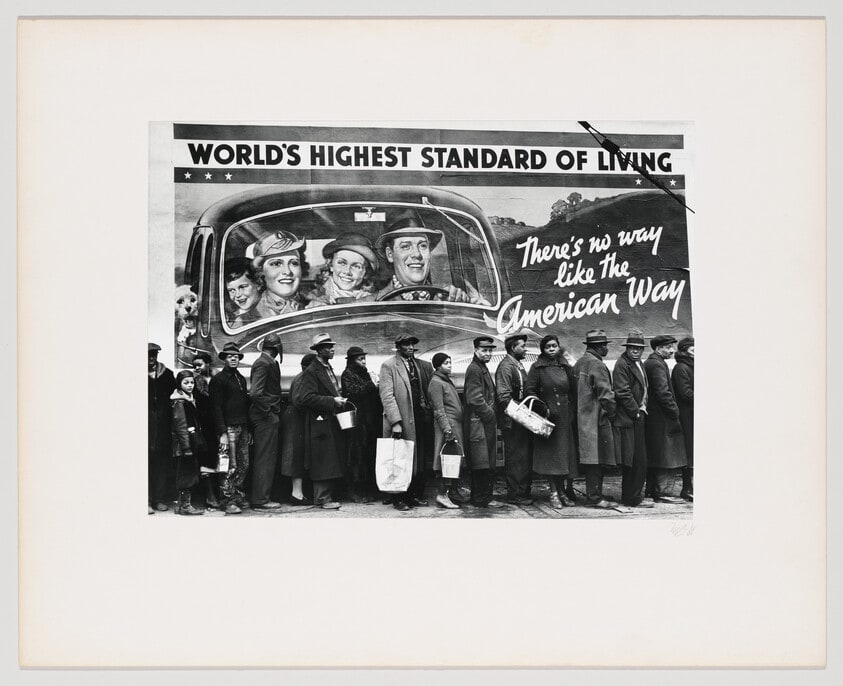 WORLD'S HIGHEST STANDARD OF LIVING
There's no way
like the
American Way